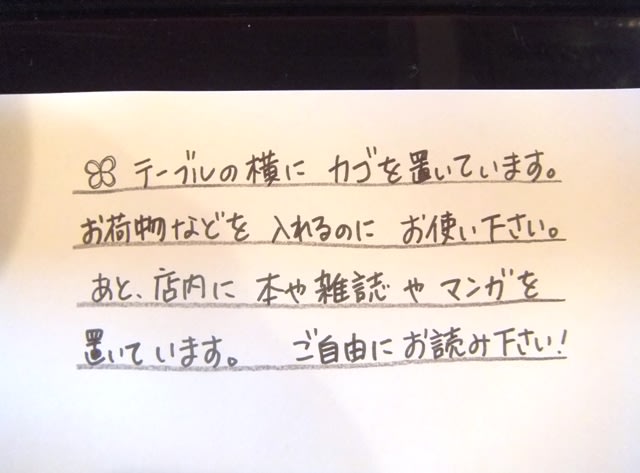 テーブルの横に カゴを置いています。
お荷物などを 入れるのに お使い下さい。
あと、店内に 本や雑誌や マンガを
置いています。 ご自由にお読み下さい!